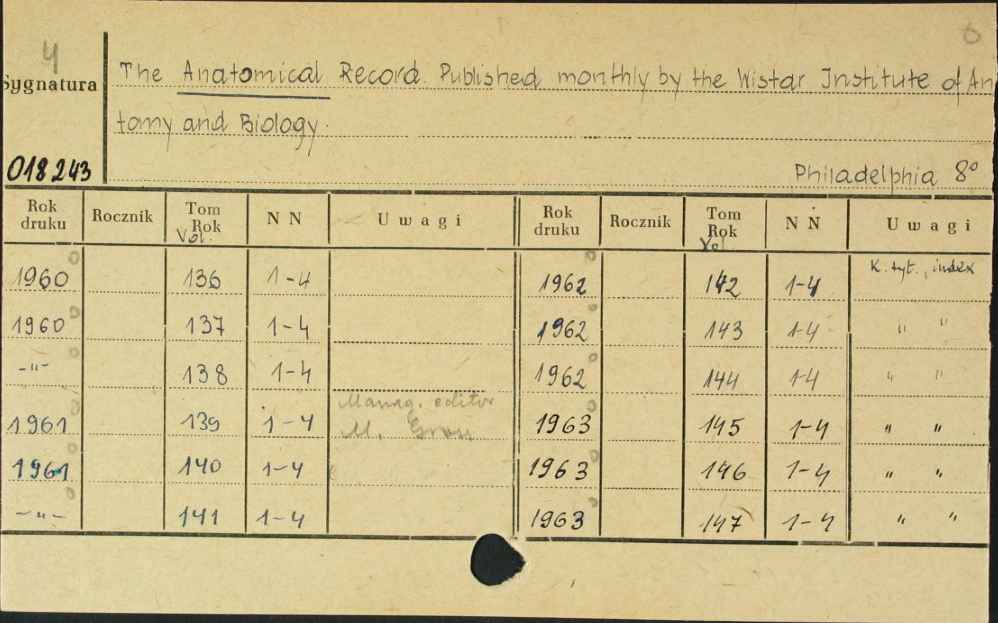 4
Sygnatura
The Anatomical Record. Published monthly by the Wistar Institute of An
tomy and Biology.
018243
Philadelphia 8°
Rok druku Rocznik Tom Rok Vol. N N Uwagi Rok druku Rocznik Tom Rok Vol. N N Uwagi
1960 136 1-4 1962 142 1-4 K. tyt., index
1960 137 1-4 1962 143 1-4 " "
-"- 138 1-4 1962 144 1-4 " "
1961 139 1-4 Manag. editor M. 1963 145 1-4 " "
1961 140 1-4 1963 146 1-4 " "
-"- 141 1-4 1963 147 1-4 " "